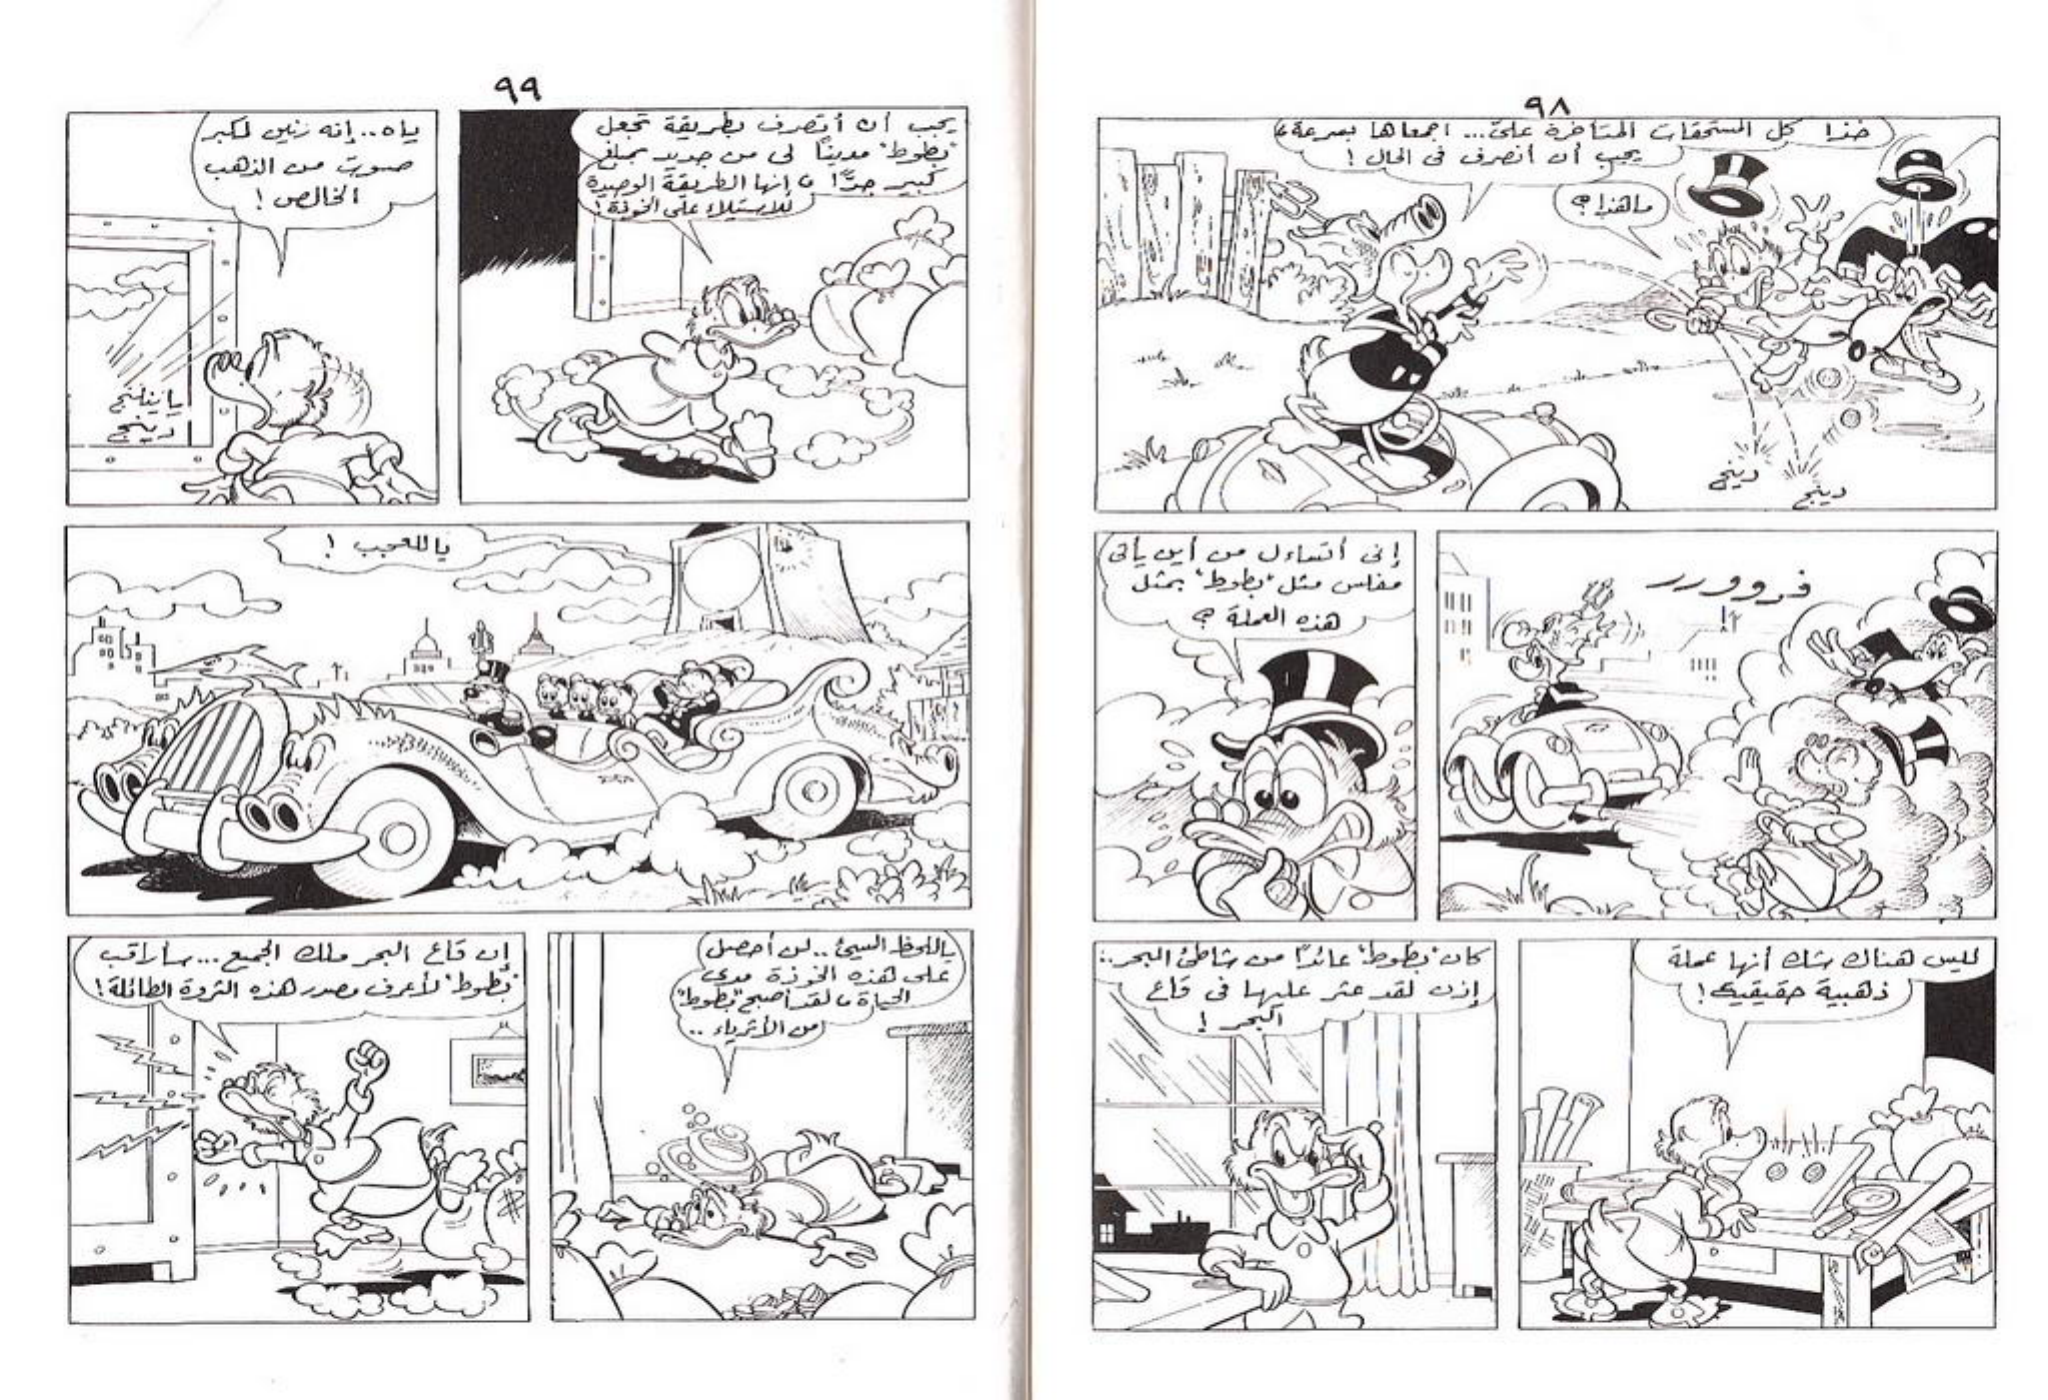 ٩٨
خذا كل المستحقات المتأخرة علىّ... اجمعاها بسرعة،
يجب أن أنصرف فى الحال !
ماهذا؟
دينج
دينج
فرووررر
!!
إنى أتساءل من أين يأتى
مفلس مثل "بطوط" بمثل
هذه العملة ؟
ليس هناك شك أنها عملة
ذهبية حقيقية !
كان "بطوط" عائدًا من شاطئ البحر..
إذن لقد عثر عليها فى قاع
البحر !
٩٩
يجب أن أتصرف بطريقة تجعل
"بطوط" مدينًا لى من جديد بمبلغ
كبير جدًّا ، إنها الطريقة الوحيدة
للاستيلاء على الخوذة !
ياه.. إنه زنين لكبر
صوت من الذهب
الخالص !
يا ينلنج
دينج
ياللعجب !
ياللحظ السيئ.. لن أحصل
على هذه الخوذة مدى
الحياة ، لقد أصبح "بطوط"
من الأثرياء ..
إن قاع البحر ملك الجميع... سأراقب
"بطوط" لأعرف مصدر هذه الثروة الطائلة !